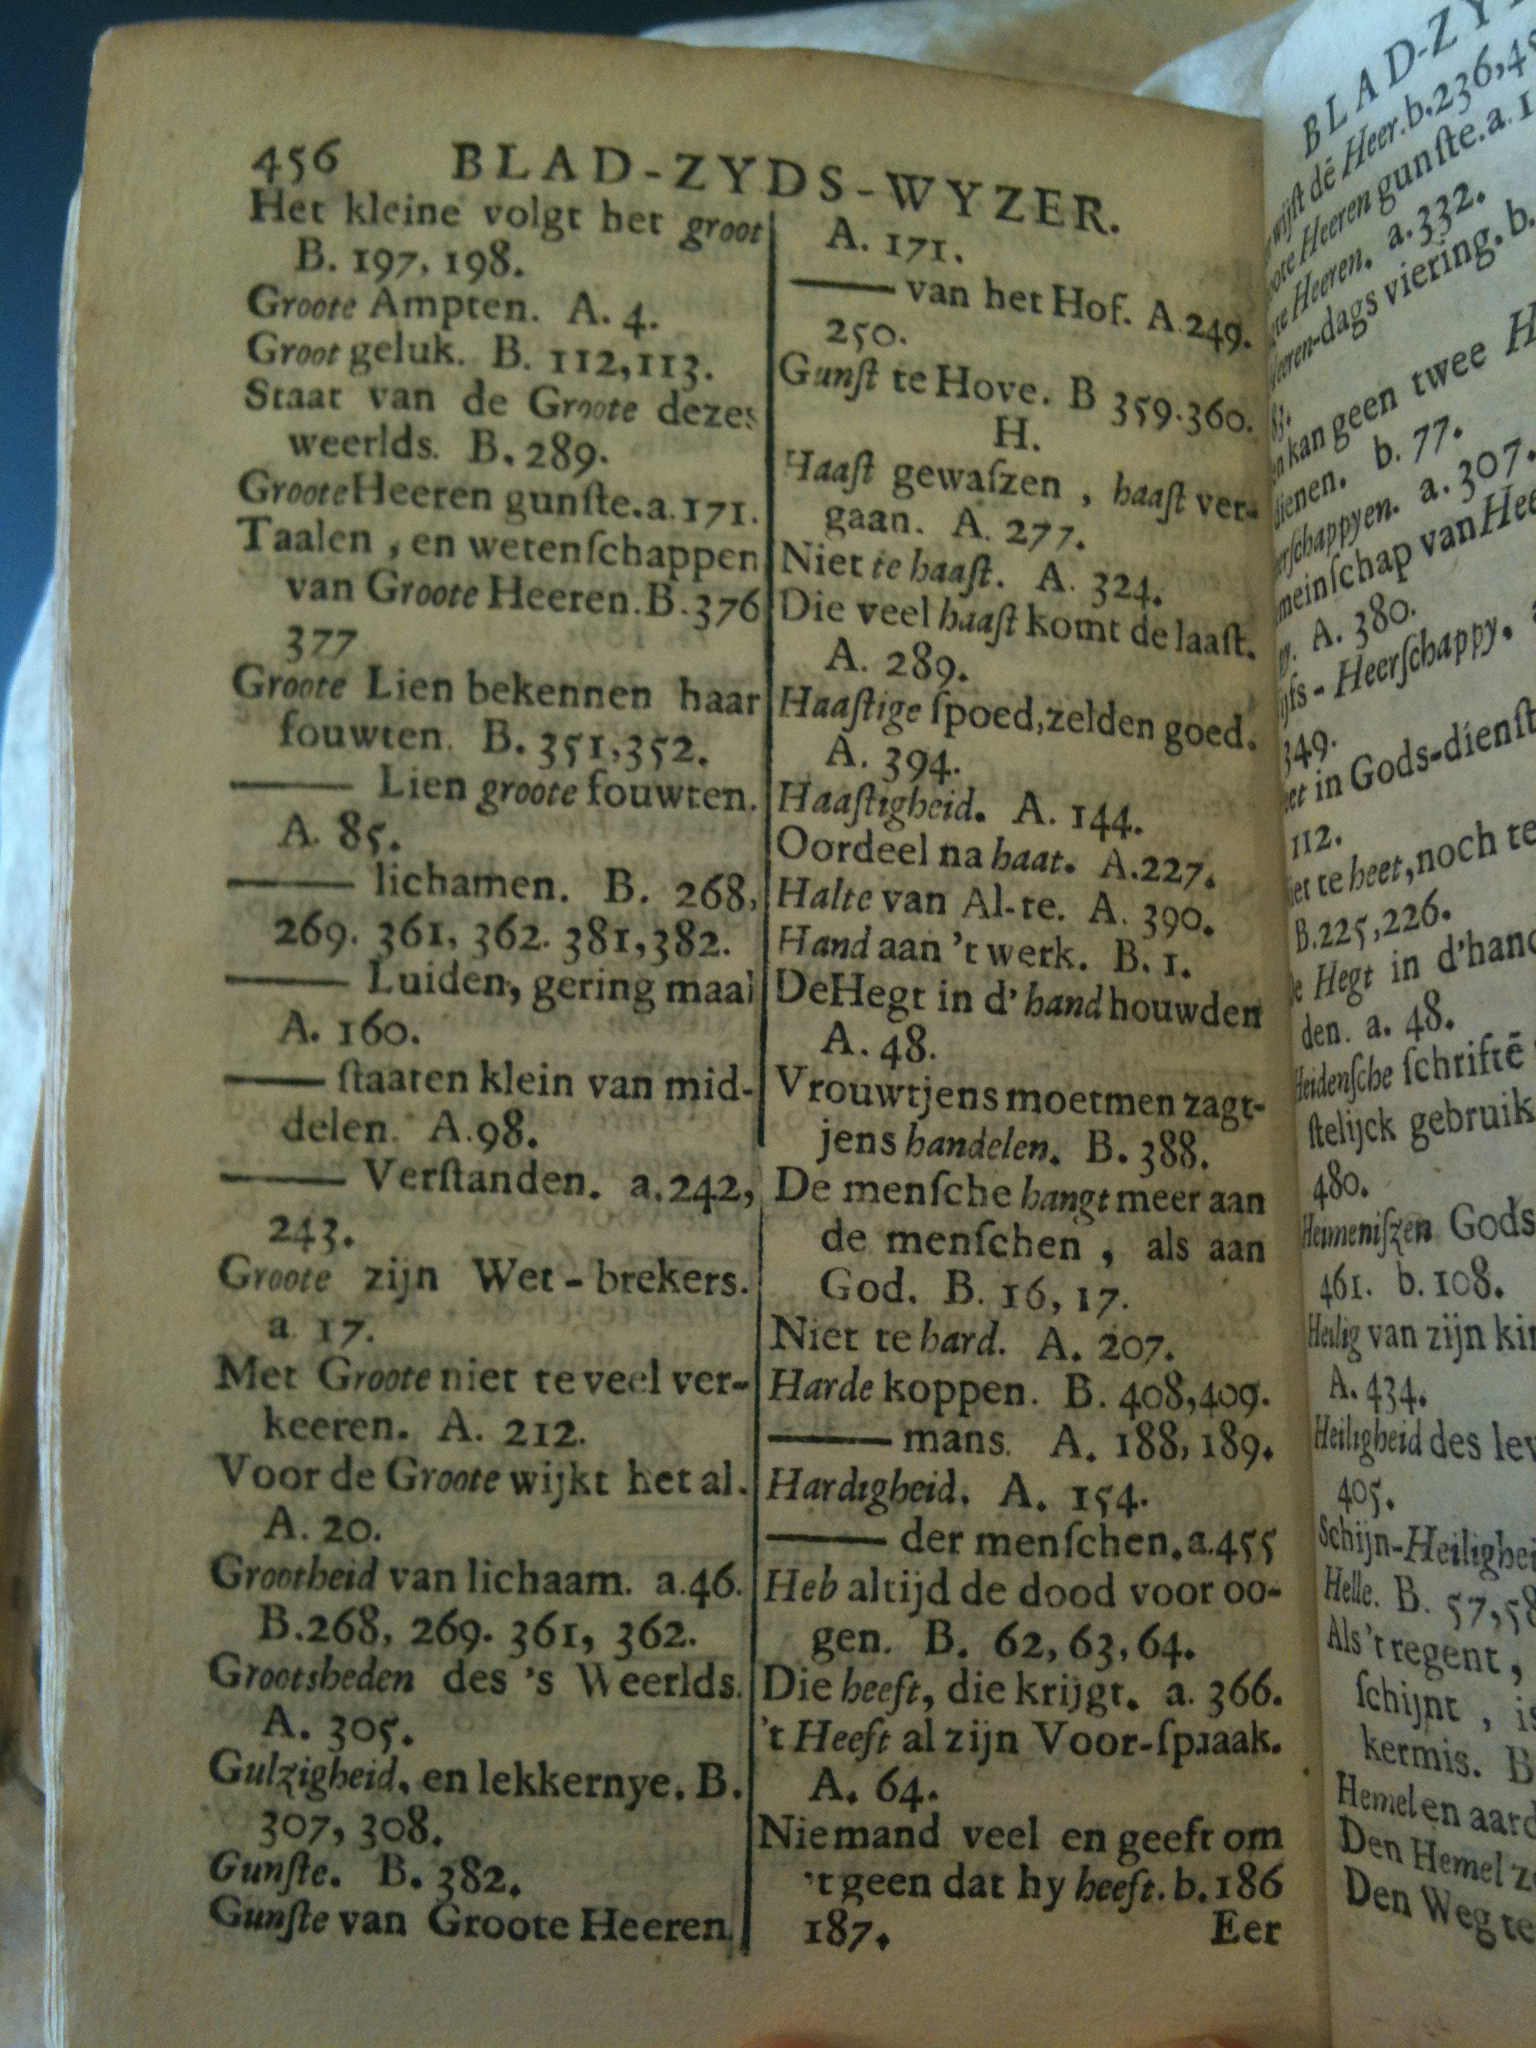 456 BLAD-ZYDS-WYZER.
Het kleine volgt het groot
B. 197, 198.
Groote Ampten. A. 4.
Groot geluk. B. 112,113.
Staat van de Groote dezes
weerlds. B. 289.
Groote Heeren gunſte. a. 171.
Taalen, en wetenſchappen
van Groote Heeren. B. 376
377
Groote Lien bekennen haar
fouwten. B. 351,352.
—— Lien groote fouwten.
A. 85.
—— lichamen. B. 268,
269. 361, 362. 381,382.
—— Luiden, gering maal
A. 160.
—— ſtaaten klein van mid-
delen. A.98.
—— Verſtanden. a.242,
243.
Groote zijn Wet-brekers.
a 17.
Met Groote niet te veel ver-
keeren. A. 212.
Voor de Groote wijkt het al.
A. 20.
Grootheid van lichaam. a.46.
B.268, 269. 361, 362.
Grootsheden des 's Weerlds.
A. 305.
Gulzigheid, en lekkernye. B.
307, 308.
Gunſte. B. 382.
Gunſte van Groote Heeren.
A. 171.
—— van het Hof. A.249.
250.
Gunſt te Hove. B 359.360.
H.
Haaſt gewaſzen, haaſt ver-
gaan. A. 277.
Niet te haaſt. A. 324.
Die veel haaſt komt de laaſt.
A. 289.
Haaſtige ſpoed, zelden goed.
A. 394.
Haaſtigheid. A. 144.
Oordeel na haat. A.227.
Halte van Al-te. A. 390.
Hand aan 't werk. B. 1.
De Hegt in d' hand houwden
A. 48.
Vrouwtjens moetmen zagt-
jens handelen. B. 388.
De menſche hangt meer aan
de menſchen, als aan
God. B. 16, 17.
Niet te hard. A. 207.
Harde koppen. B. 408,409.
—— mans. A. 188, 189.
Hardigheid. A. 154.
—— der menſchen. a.455
Heb altijd de dood voor oo-
gen. B. 62, 63, 64.
Die heeft, die krijgt. a. 366.
't Heeft al zijn Voor-ſpraak.
A. 64.
Niemand veel en geeft om
't geen dat hy heeft. b.186
187.
Eer
BLAD-ZY
wijſt dē Heer. b.236,45
Heeren gunſte. a. 1
Heeren. a. 332.
dags viering. b.
kan geen twee H
dienen. b. 77.
a. 307.
van Hee
A. 380.
Heerſchappy.
349.
in Gods-dienſt
112.
te heet, noch te
B.225,226.
Hegt in d'hand
den. a. 48.
Heidenſche ſchriftē
ſtelijck gebruik
480.
Heimeniſzen Gods
461. b. 108.
Heilig van zijn kin
A. 434.
Heiligheid des lev
405.
Schijn-Heilighei
Helle. B. 57,58
Als 't regent,
ſchijnt, is
kermis. B
Hemel en aard
Den Hemel
Den Weg te